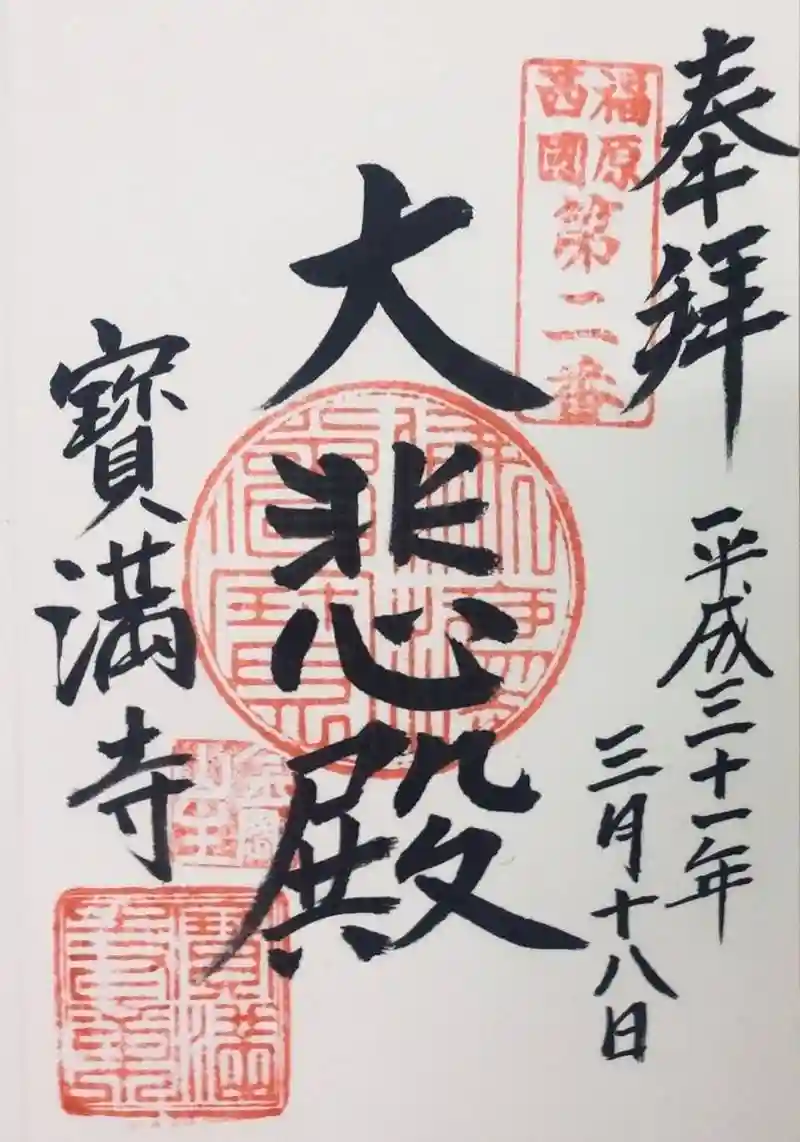 奉拜
平成三十一年
三月十八日
福原
西國
第二番
大悲殿
寶滿寺